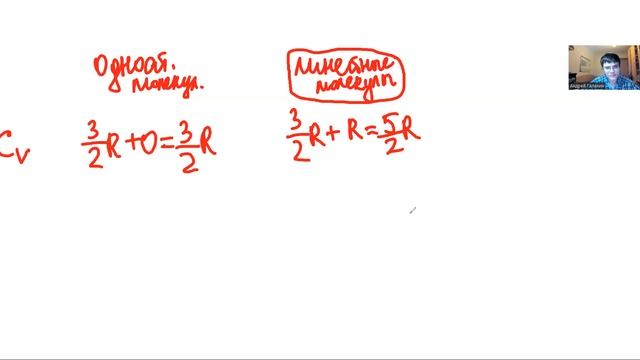 Одноат.
молекул.
Линейные
молекулы
Cv 3/2 R + 0 = 3/2 R
3/2 R + R = 5/2 R
Андрей Галанин